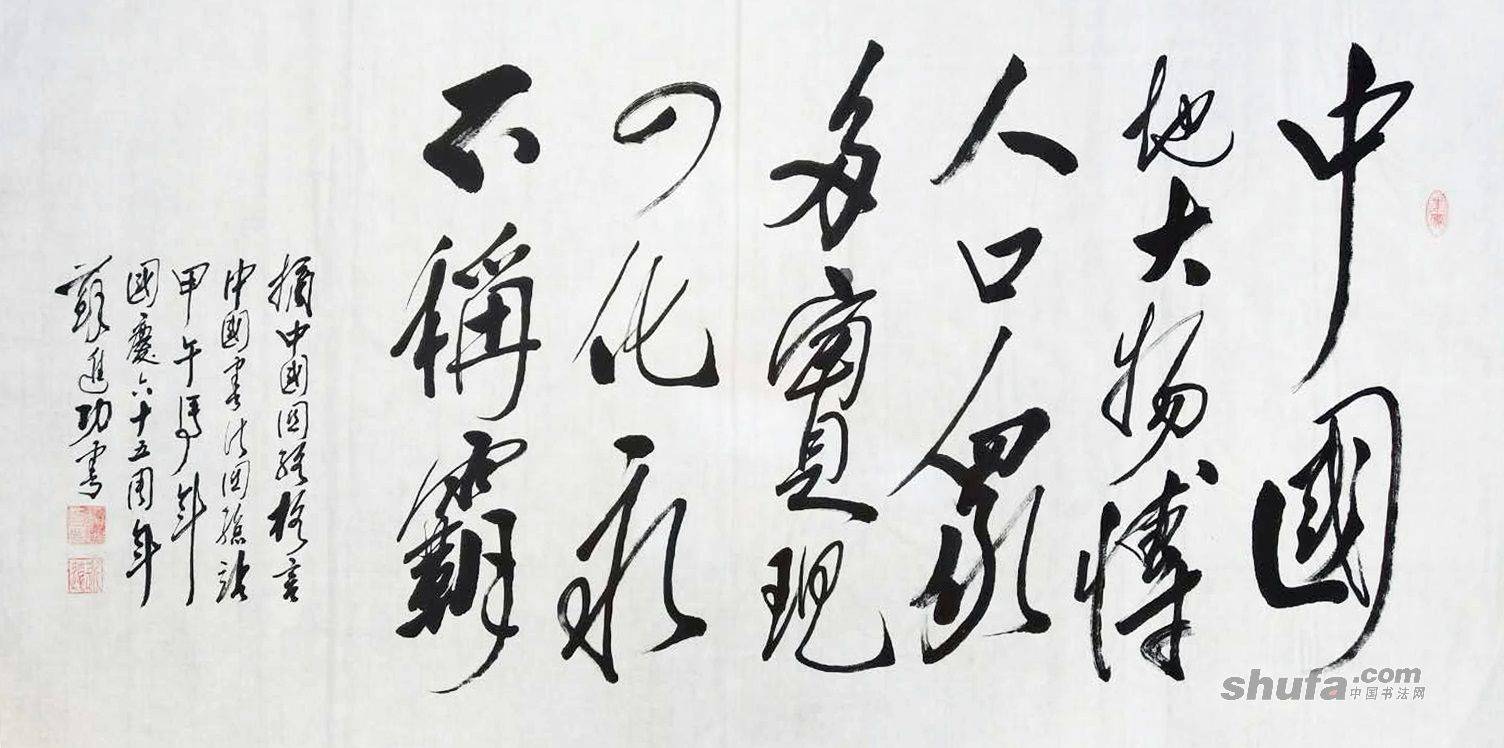 中國
地大物博
人口眾
多實現
四化永
不稱霸
摘中國格言
中國書法站
甲午馬年
國慶六十五周年
蘇進功書
shufa.com
中国书法网